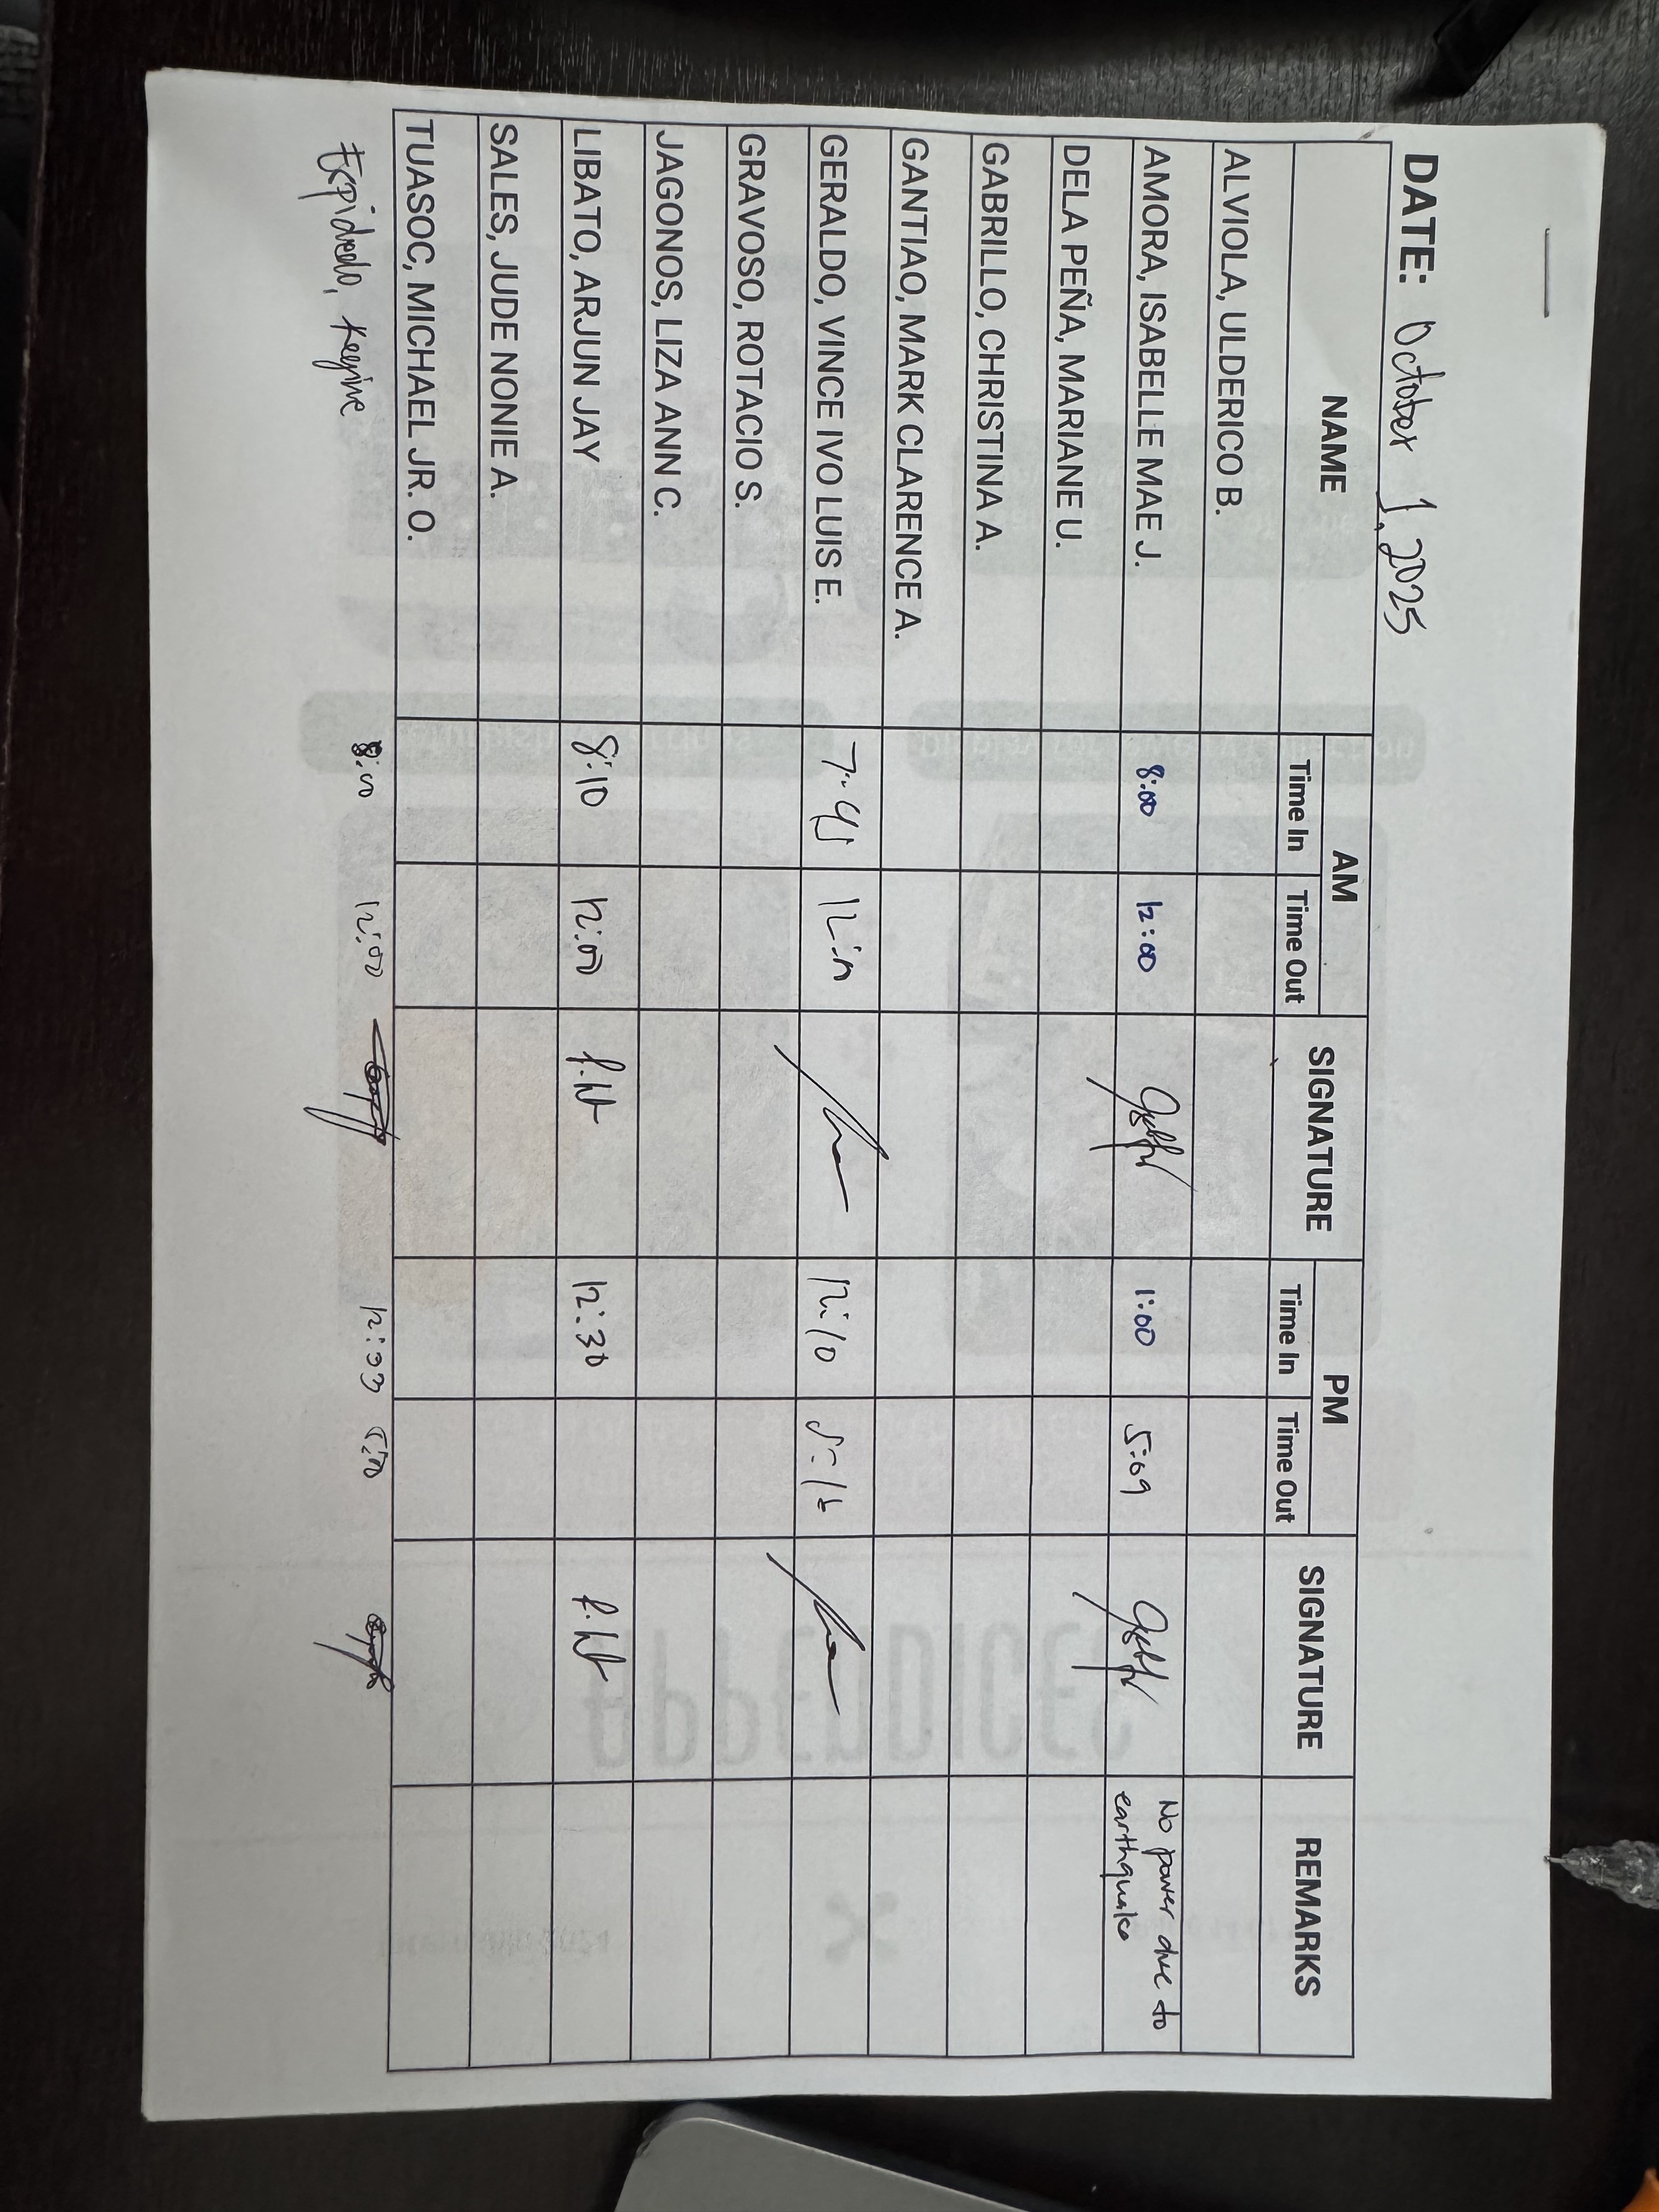 DATE: October 1, 2025
NAME AM SIGNATURE PM SIGNATURE REMARKS
Time In Time Out Time In Time Out
ALVIOLA, ULDERICO B.
AMORA, ISABELLE MAE J. 8:00 12:00 1:00 5:09 No power due to
earthquake
DELA PEÑA, MARIANE U.
GABRILLO, CHRISTINA A.
GANTIAO, MARK CLARENCE A.
GERALDO, VINCE IVO LUIS E. 7:45 12:10
GRAVOSO, ROTACIO S.
JAGONOS, LIZA ANN C.
LIBATO, ARJUN JAY 8:10 12:00 12:30
SALES, JUDE NONIE A.
TUASOC, MICHAEL JR. O.
8:00 12:00 12:33 5:00
APPENDICES